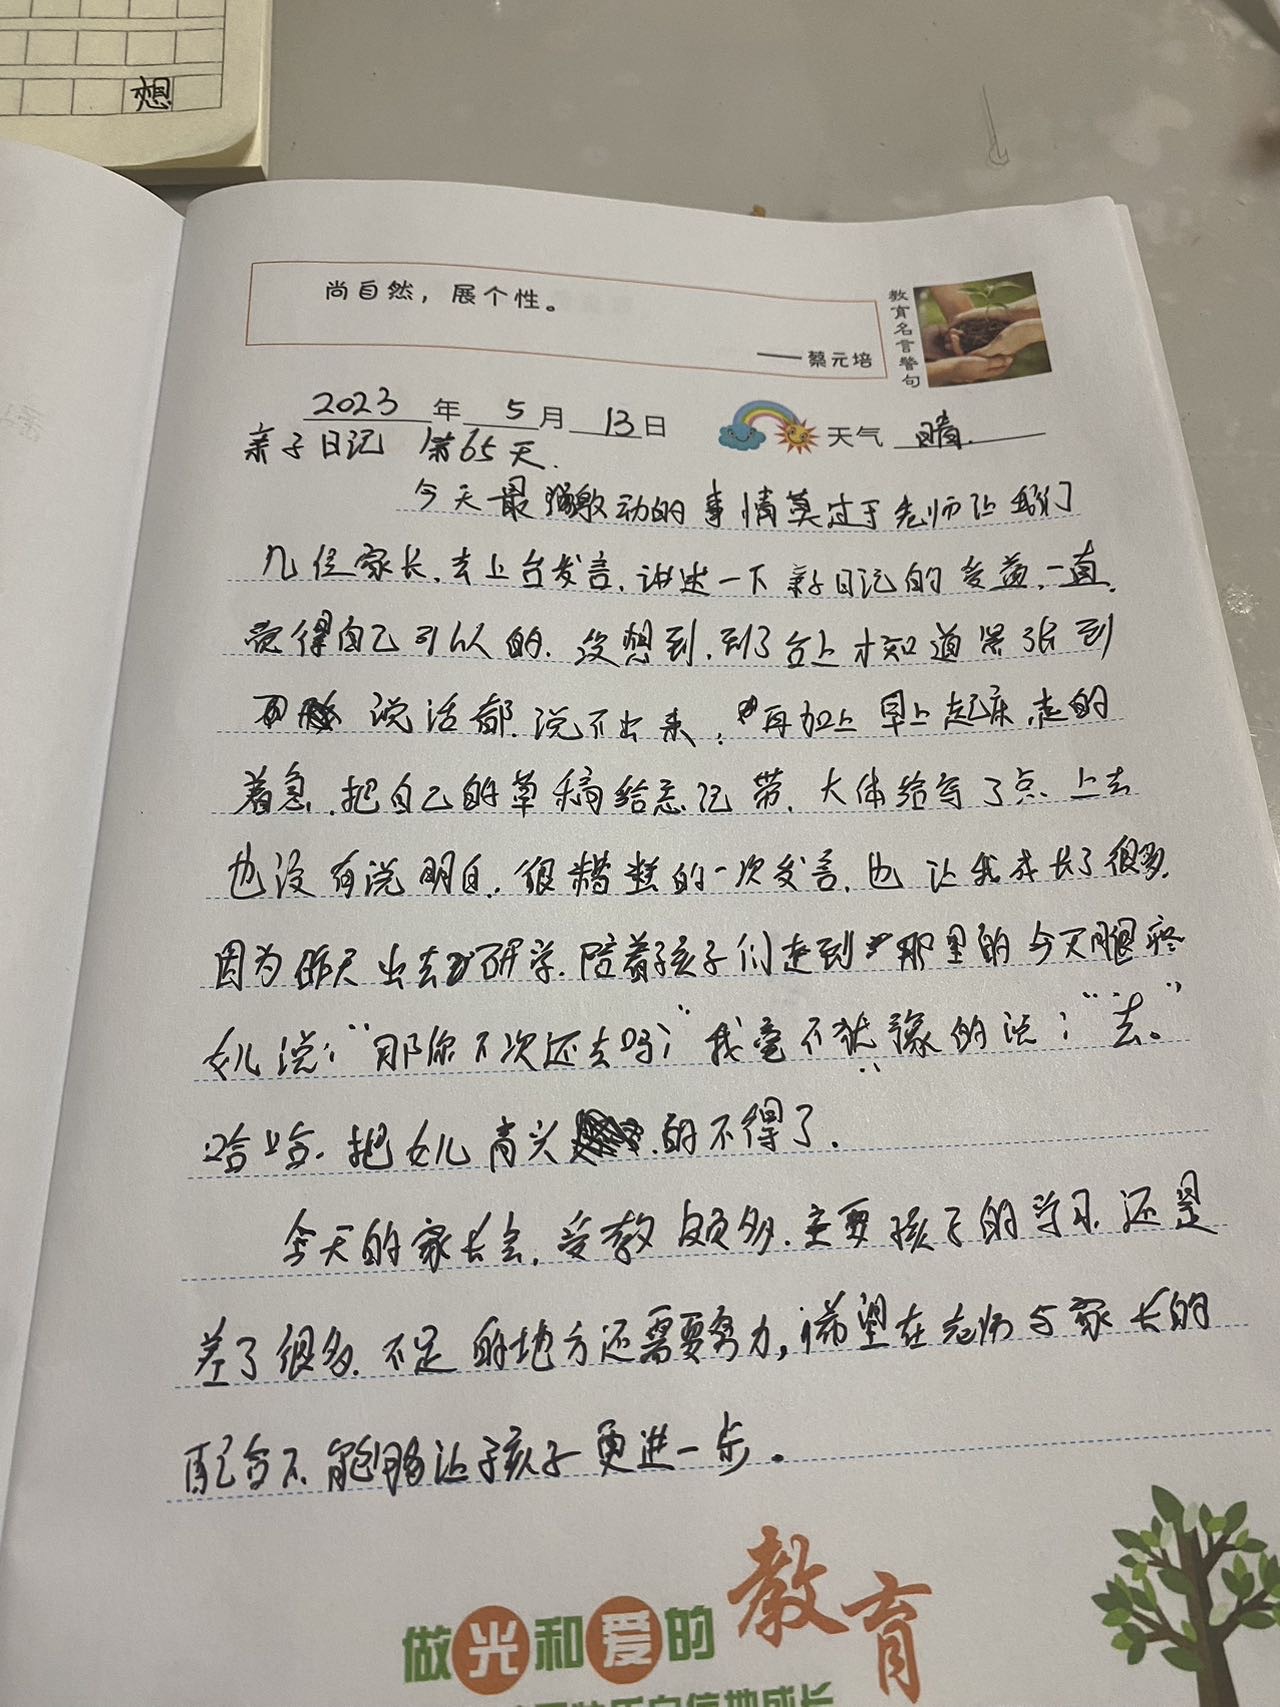 想
尚自然，展个性。
——蔡元培
教育名言警句
2023年5月13日 天气 晴.
亲子日记 第65天.
今天最激动的事情莫过于老师让我们
几位家长.去上台发言.讲述一下亲子日记的受益.一直.
觉得自己可以的.没想到.到了台上才知道紧张到
说话都.说不出来，再加上早上起床.走的
着急.把自己的草稿给忘记带.大体给写了点.上去
也没有说明白.很糟糕的一次发言.也让我成长了很多.
因为昨天出去研学.陪着孩子们走到那里的今天腿疼
女儿说："那你下次还去吗？"我毫不犹豫的说："去。"
哈哈.把女儿高兴.的不得了.
今天的家长会.受教颇多.主要孩子的学习.还是
差了很多.不足的地方还需要努力，希望在老师与家长的
配合下.能够让孩子更进一步。
做光和爱的教育